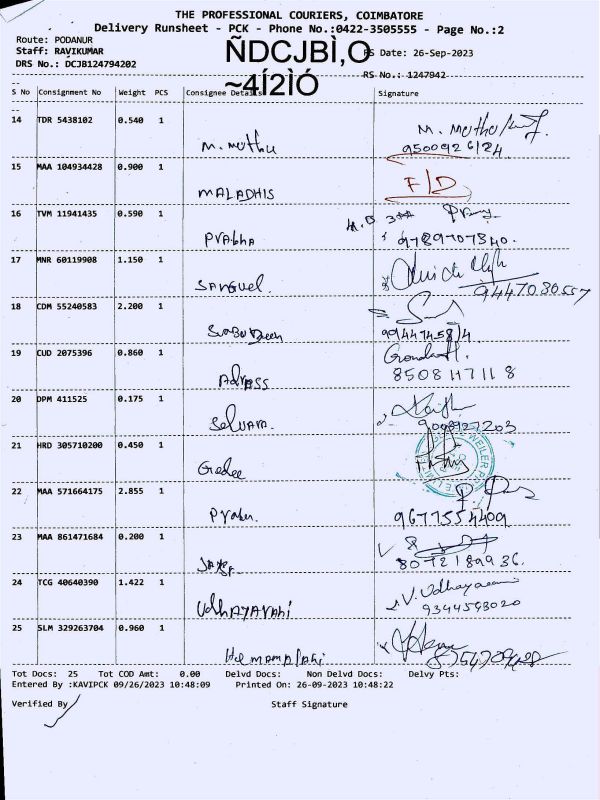 THE PROFESSIONAL COURIERS, COIMBATORE
Delivery Runsheet - PCK - Phone No.:0422-3505555 - Page No.:2
Route: PODANUR
Staff: RAVIKUMAR
ÑDCJBÌ‚O
Date: 26-Sep-2023
DRS No.: DCJB124794202
~4Í2ÌÓ
RS No.: 1247942
S No Consignment No Weight PCS Consignee Details Signature
14 TDR 5438102 0.540 1
M. Muthu
9500926124
15 MAA 104934428 0.900 1
MALADHIS
F/D
16 TVM 11941435 0.590 1
Prabha
9789707340.
17 MNR 60119908 1.150 1
9447030557
18 CDM 55240583 2.200 1
19 CUD 2075396 0.860 1
Adress
8508117118
20 DPM 411525 0.175 1
Selvara.
21 HRD 305710200 0.450 1
22 MAA 571664175 2.855 1
9677554409
23 MAA 861471684 0.200 1
8072189936.
24 TCG 40640390 1.422 1
V. Udhayarani
UdhAYARAhi
9344598020
25 SLM 329263704 0.960 1
Tot Docs: 25 Tot COD Amt: 0.00 Delvd Docs: Non Delvd Docs: Delvy Pts:
Entered By :KAVIPCK 09/26/2023 10:48:09 Printed On: 26-09-2023 10:48:22
Verified By Staff Signature